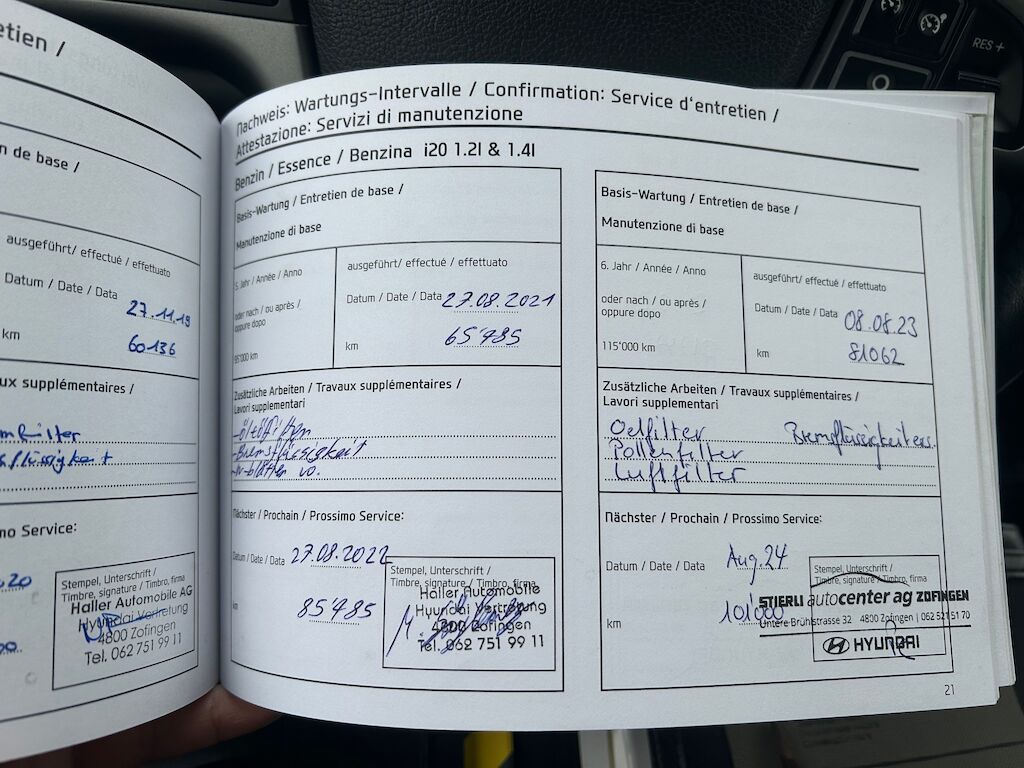 etien /
n de base /
ausgeführt/ effectué / effettuato
Datum / Date / Data
27.11.19
km
60136
ux supplémentaires /
mo Service:
Stempel, Unterschrift /
Timbre, signature / Timbro, firma
Haller Automobile AG
Hyundai Vertretung
4800 Zofingen
Tel. 062 751 99 11
Nachweis: Wartungs-Intervalle / Confirmation: Service d'entretien /
Attestazione: Servizi di manutenzione
Benzin / Essence / Benzina i20 1.2l & 1.4l
Basis-Wartung / Entretien de base /
Manutenzione di base
5. Jahr / Année / Anno
oder nach / ou après /
oppure dopo
95'000 km
ausgeführt/ effectué / effettuato
Datum / Date / Data 27.08.2021
km 65'485
Zusätzliche Arbeiten / Travaux supplémentaires /
Lavori supplementari
-Bremsflüssigkeit
Nächster / Prochain / Prossimo Service:
Datum / Date / Data 27.08.2022
km 85'485
Stempel, Unterschrift /
Timbre, signature / Timbro, firma
Haller Automobile
Hyundai Vertretung
4800 Zofingen
Tel. 062 751 99 11
Basis-Wartung / Entretien de base /
Manutenzione di base
6. Jahr / Année / Anno
oder nach / ou après /
oppure dopo
115'000 km
ausgeführt/ effectué / effettuato
Datum / Date / Data 08.08.23
km 81062
Zusätzliche Arbeiten / Travaux supplémentaires /
Lavori supplementari
Oelfilter
Pollenfilter
Luftfilter
Nächster / Prochain / Prossimo Service:
Datum / Date / Data Aug. 24
km 101'000
Stempel, Unterschrift /
Timbre, signature / Timbro, firma
STIERLI autocenter ag ZOFINGEN
Untere Brühlstrasse 32 4800 Zofingen | 062 521 51 70
HYUNDAI
21
RES +